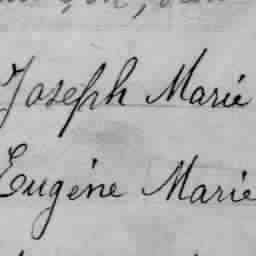 Joseph Marie
Eugène Marie